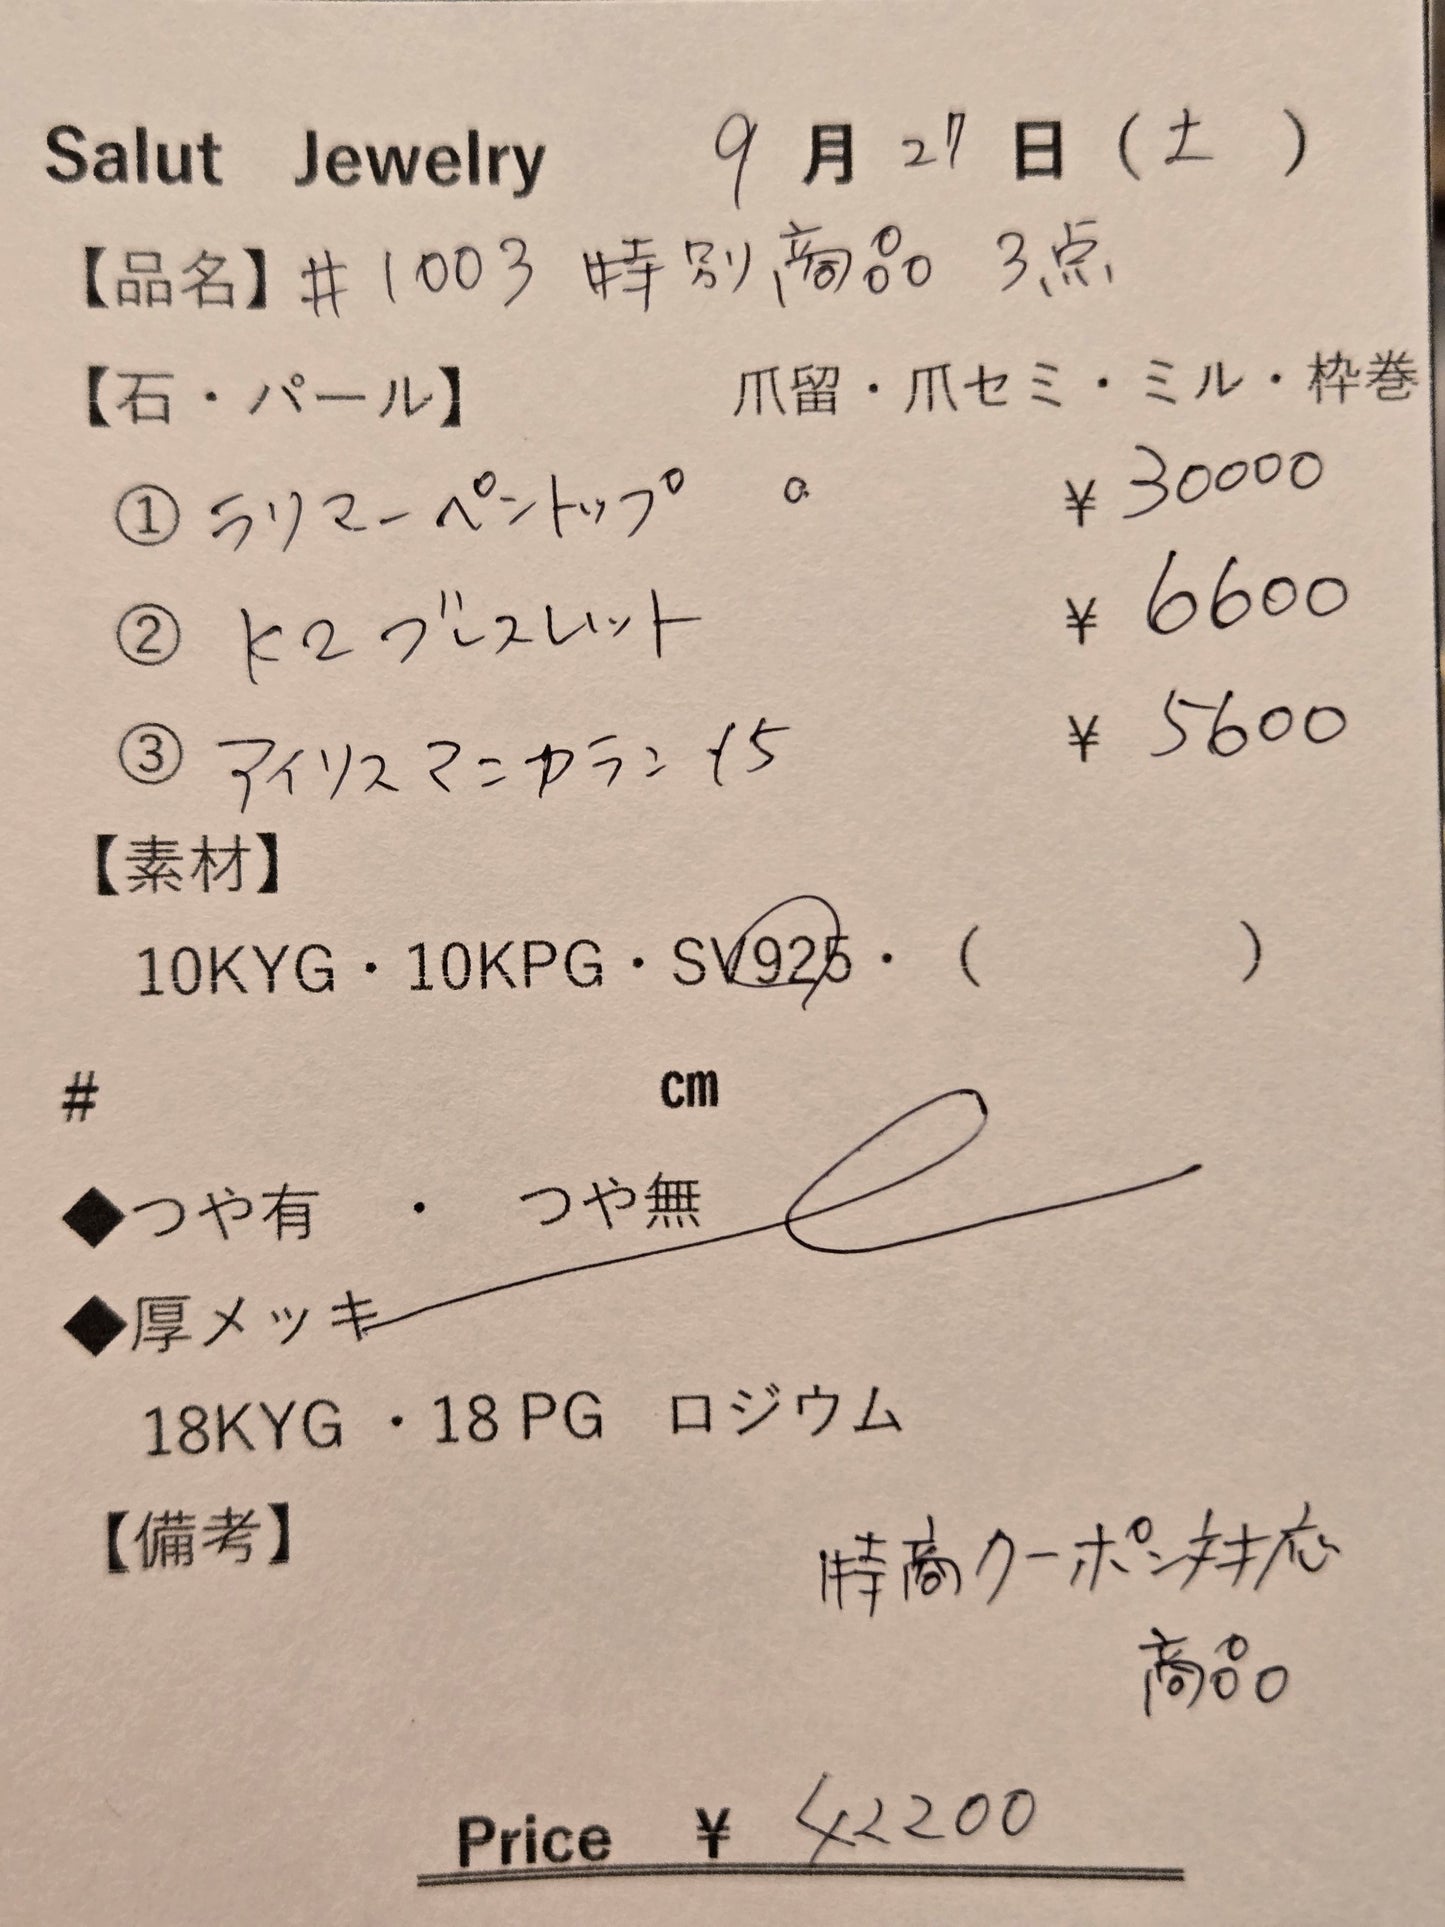 Salut Jewelry 9月27日(土)
【品名】#1003 特別商品 3点
【石・パール】 爪留・爪セミ・ミル・枠巻
① ラリマーペントップ ¥30000
② K2ブレスレット ¥6600
③ アイリスマニカラン 15 ¥5600
【素材】
10KYG・10KPG・SV925・( )
# cm
◆つや有 ・ つや無
◆厚メッキ
18KYG ・18 PG ロジウム
【備考】
特商クーポン対応
商品
Price ¥ 42200